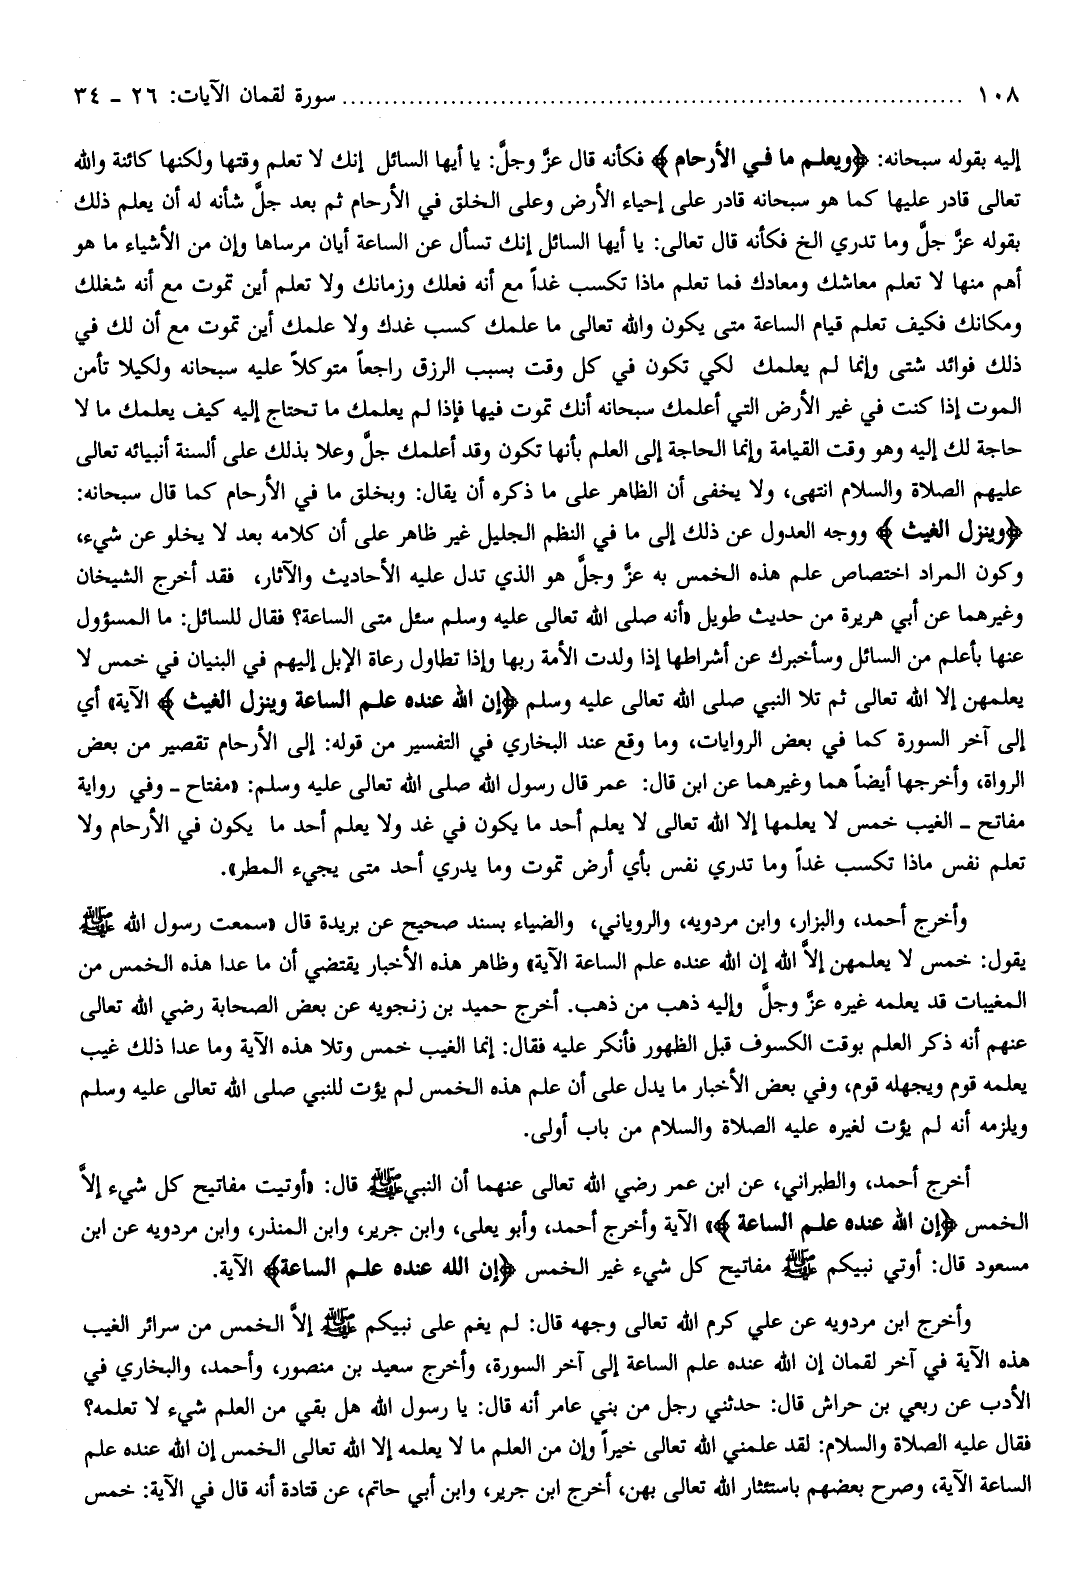 ١٠٨ ........................................................................ سورة لقمان الآيات: ٢٦ ـ ٣٤
إليه بقوله سبحانه: ﴿ويعلم ما في الأرحام﴾ فكأنه قال عزَّ وجلَّ: يا أيها السائل إنك لا تعلم وقتها ولكنها كائنة والله
تعالى قادر عليها كما هو سبحانه قادر على إحياء الأرض وعلى الخلق في الأرحام ثم بعد جلَّ شأنه له أن يعلم ذلك
بقوله عزَّ جلَّ وما تدري الخ فكأنه قال تعالى: يا أيها السائل إنك تسأل عن الساعة أيان مرساها وإن من الأشياء ما هو
أهم منها لا تعلم معاشك ومعادك فما تعلم ماذا تكسب غداً مع أنه فعلك وزمانك ولا تعلم أين تموت مع أنه شغلك
ومكانك فكيف تعلم قيام الساعة متى يكون والله تعالى ما علمك كسب غدك ولا علمك أين تموت مع أن لك في
ذلك فوائد شتى وإنما لم يعلمك لكي تكون في كل وقت بسبب الرزق راجعاً متوكلاً عليه سبحانه ولكيلا تأمن
الموت إذا كنت في غير الأرض التي أعلمك سبحانه أنك تموت فيها فإذا لم يعلمك ما تحتاج إليه كيف يعلمك ما لا
حاجة لك إليه وهو وقت القيامة وإنما الحاجة إلى العلم بأنها تكون وقد أعلمك جلَّ وعلا بذلك على ألسنة أنبيائه تعالى
عليهم الصلاة والسلام انتهى، ولا يخفى أن الظاهر على ما ذكره أن يقال: وبخلق ما في الأرحام كما قال سبحانه:
﴿وينزل الغيث﴾ ووجه العدول عن ذلك إلى ما في النظم الجليل غير ظاهر على أن كلامه بعد لا يخلو عن شيء،
وكون المراد اختصاص علم هذه الخمس به عزَّ وجلَّ هو الذي تدل عليه الأحاديث والآثار، فقد أخرج الشيخان
وغيرهما عن أبي هريرة من حديث طويل «أنه صلى الله تعالى عليه وسلم سئل متى الساعة؟ فقال للسائل: ما المسؤول
عنها بأعلم من السائل وسأخبرك عن أشراطها إذا ولدت الأمة ربها وإذا تطاول رعاة الإبل إليهم في البنيان في خمس لا
يعلمهن إلا الله تعالى ثم تلا النبي صلى الله تعالى عليه وسلم ﴿إن الله عنده علم الساعة وينزل الغيث﴾ الآية» أي
إلى آخر السورة كما في بعض الروايات، وما وقع عند البخاري في التفسير من قوله: إلى الأرحام تقصير من بعض
الرواة، وأخرجها أيضاً هما وغيرهما عن ابن قال: عمر قال رسول الله صلى الله تعالى عليه وسلم: «مفتاح ـ وفي رواية
مفاتح ـ الغيب خمس لا يعلمها إلا الله تعالى لا يعلم أحد ما يكون في غد ولا يعلم أحد ما يكون في الأرحام ولا
تعلم نفس ماذا تكسب غداً وما تدري نفس بأي أرض تموت وما يدري أحد متى يجيء المطر».
وأخرج أحمد، والبزار، وابن مردويه، والروياني، والضياء بسند صحيح عن بريدة قال «سمعت رسول الله ﷺ
يقول: خمس لا يعلمهن إلاَّ الله إن الله عنده علم الساعة الآية» وظاهر هذه الأخبار يقتضي أن ما عدا هذه الخمس من
المغيبات قد يعلمه غيره عزَّ وجلَّ وإليه ذهب من ذهب. أخرج حميد بن زنجويه عن بعض الصحابة رضي الله تعالى
عنهم أنه ذكر العلم بوقت الكسوف قبل الظهور فأنكر عليه فقال: إنما الغيب خمس وتلا هذه الآية وما عدا ذلك غيب
يعلمه قوم ويجهله قوم، وفي بعض الأخبار ما يدل على أن علم هذه الخمس لم يؤت للنبي صلى الله تعالى عليه وسلم
ويلزمه أنه لم يؤت لغيره عليه الصلاة والسلام من باب أولى.
أخرج أحمد، والطبراني، عن ابن عمر رضي الله تعالى عنهما أن النبي ﷺ قال: «أوتيت مفاتيح كل شيء إلاَّ
الخمس ﴿إن الله عنده علم الساعة﴾» الآية وأخرج أحمد، وأبو يعلى، وابن جرير، وابن المنذر، وابن مردويه عن ابن
مسعود قال: أوتي نبيكم ﷺ مفاتيح كل شيء غير الخمس ﴿إن الله عنده علم الساعة﴾ الآية.
وأخرج ابن مردويه عن علي كرم الله تعالى وجهه قال: لم يغم على نبيكم ﷺ إلاَّ الخمس من سرائر الغيب
هذه الآية في آخر لقمان إن الله عنده علم الساعة إلى آخر السورة، وأخرج سعيد بن منصور، وأحمد، والبخاري في
الأدب عن ربعي بن حراش قال: حدثني رجل من بني عامر أنه قال: يا رسول الله هل بقي من العلم شيء لا تعلمه؟
فقال عليه الصلاة والسلام: لقد علمني الله تعالى خيراً وإن من العلم ما لا يعلمه إلا الله تعالى الخمس إن الله عنده علم
الساعة الآية، وصرح بعضهم باستئثار الله تعالى بهن، أخرج ابن جرير، وابن أبي حاتم، عن قتادة أنه قال في الآية: خمس